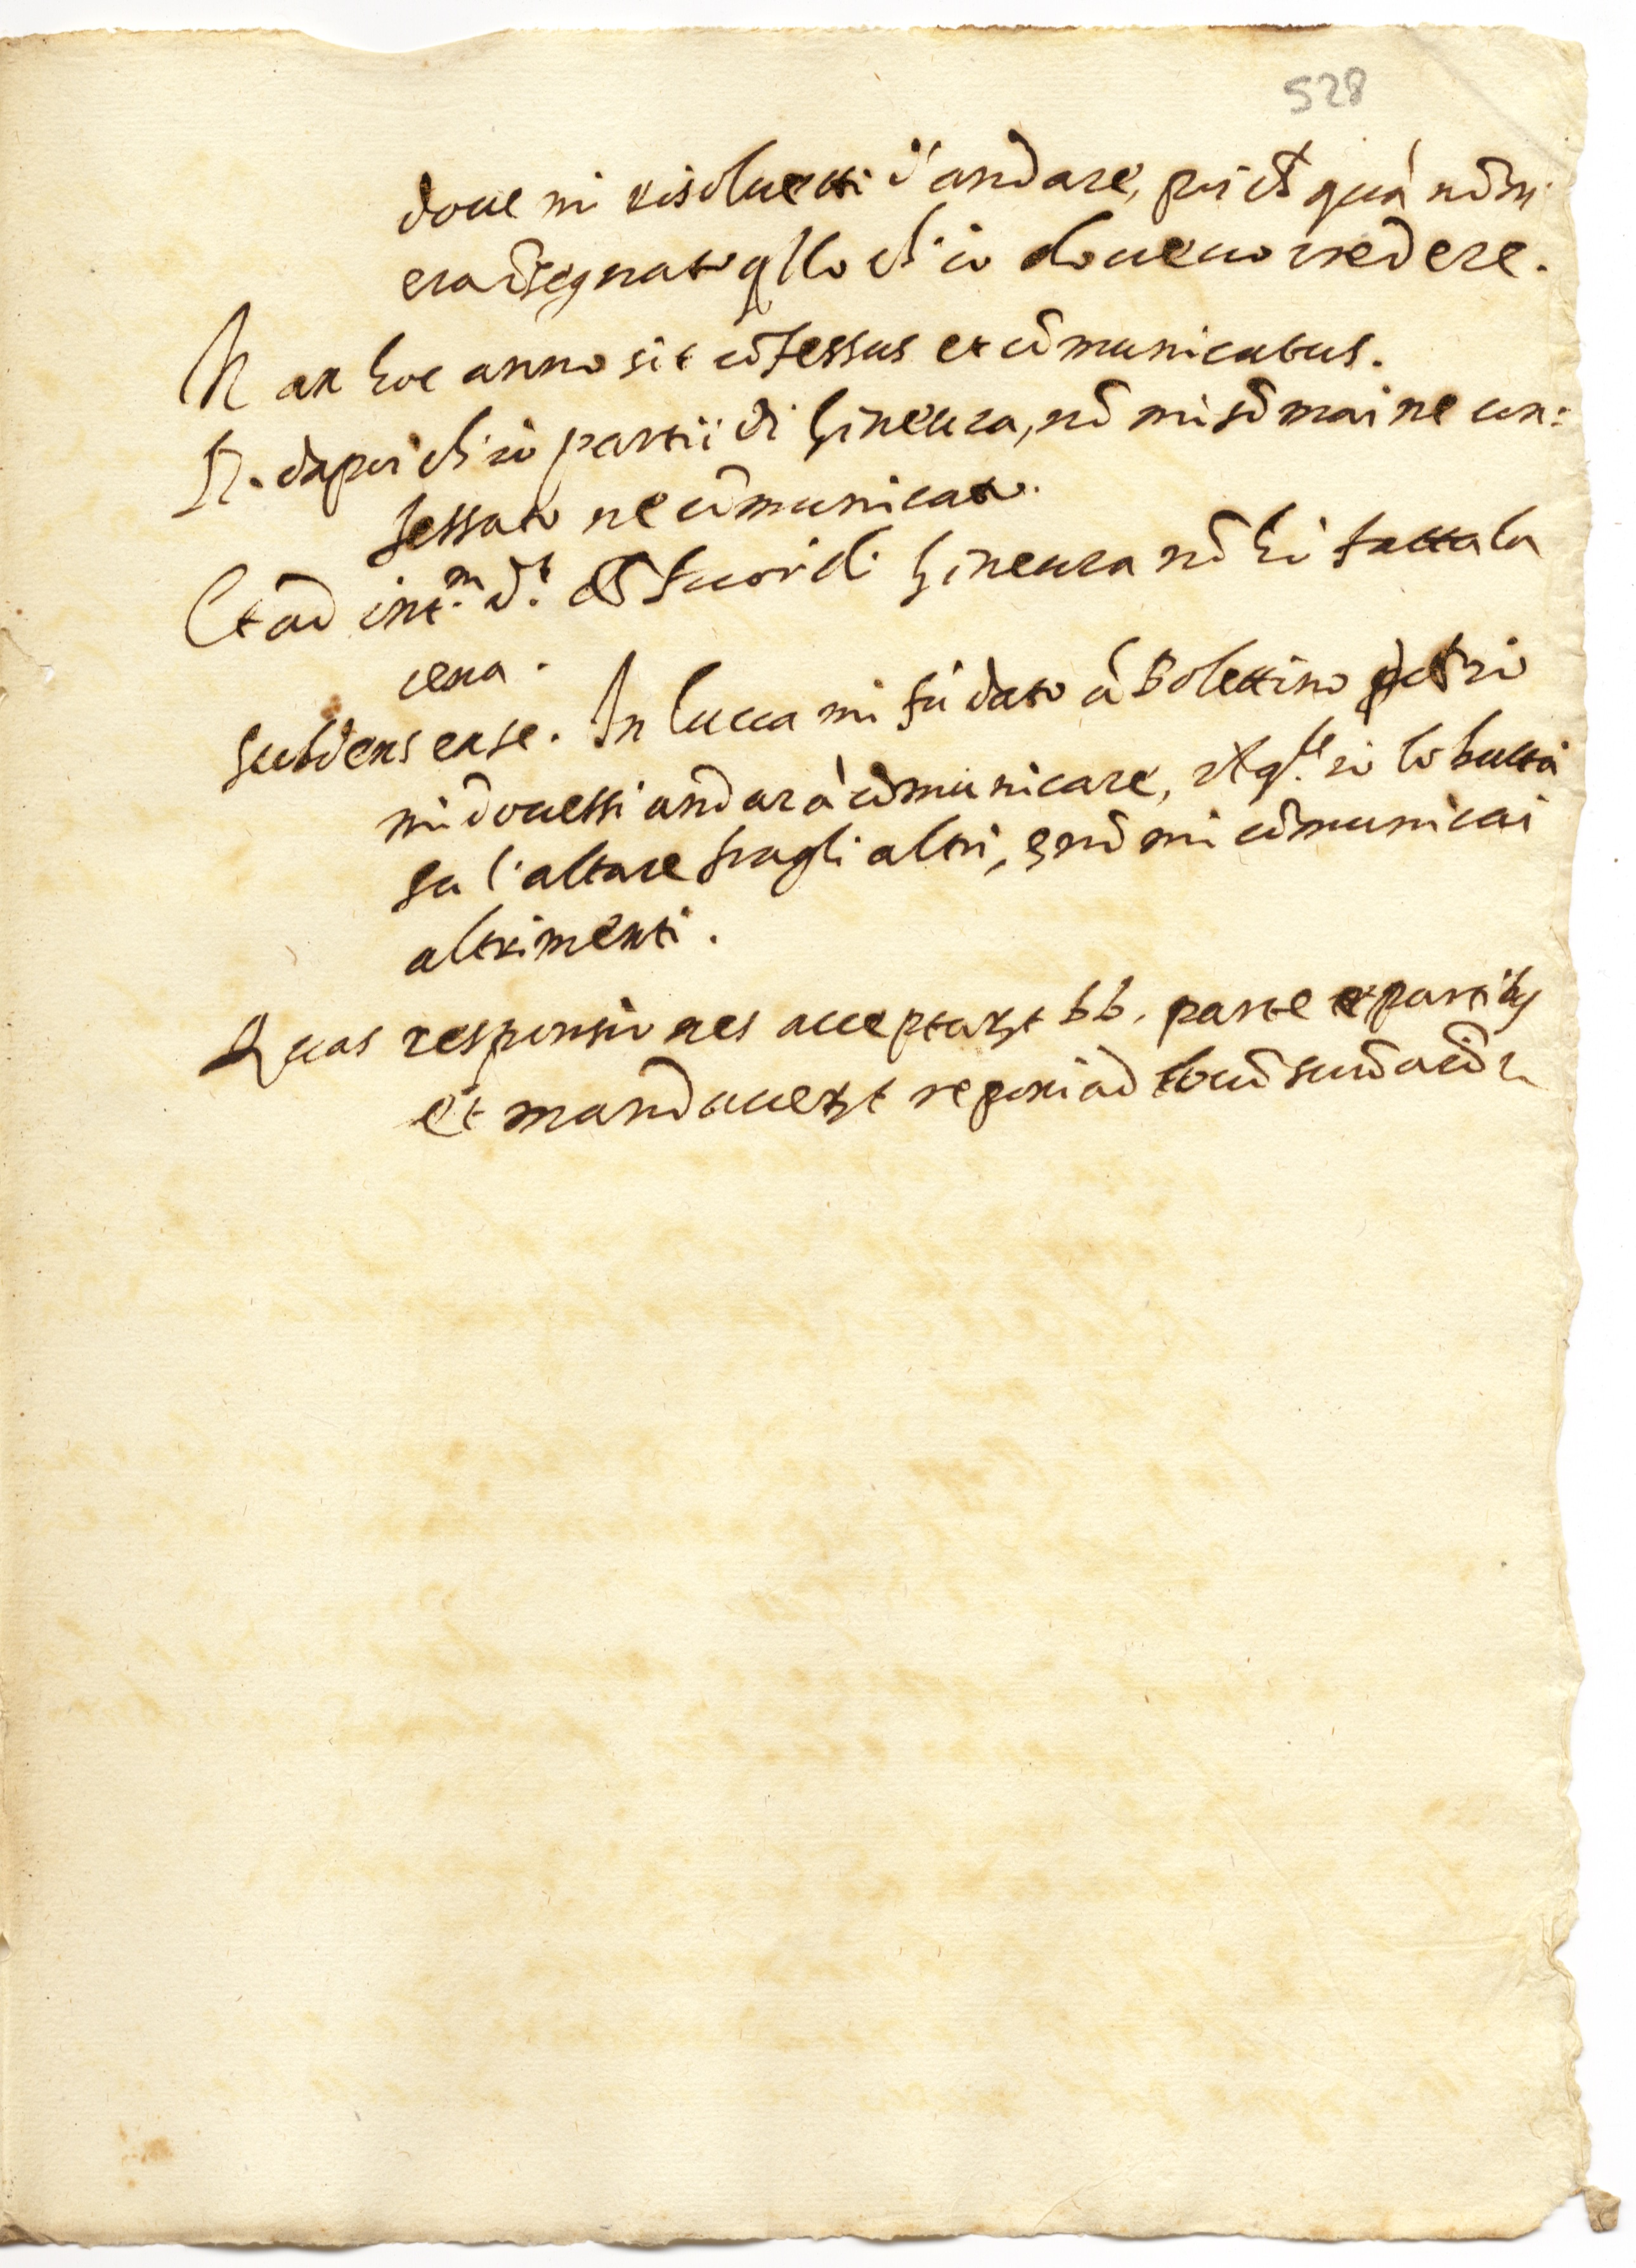 528
doue mi risoluetti d'andare, poi ch̃ quà nõ mi
era ĩsegnato q̃llo ch'io doueuo credere.
Iñ an hoc anno sit cõfessus et cõmunicatus.
R. dapoi ch'io partii di Gineura, nõ mi sõ mai ne con=
fessato ne cõmunicato.
Et ad int.m d.t fuor di Gineura nõ hò fatta la
cena.
Subdens ex se. In Lucca mi fù dato ũ Bolettino ch̃ io
mi douessi andar à cõmunicare, et q.le io lo buttai
su l'altare fra gli altri, e nõ mi cõmunicai
altrimenti.
Quas responsiones acceptarũt hb. parte et partibus
et mandauerũt reponi ad locũ suũ